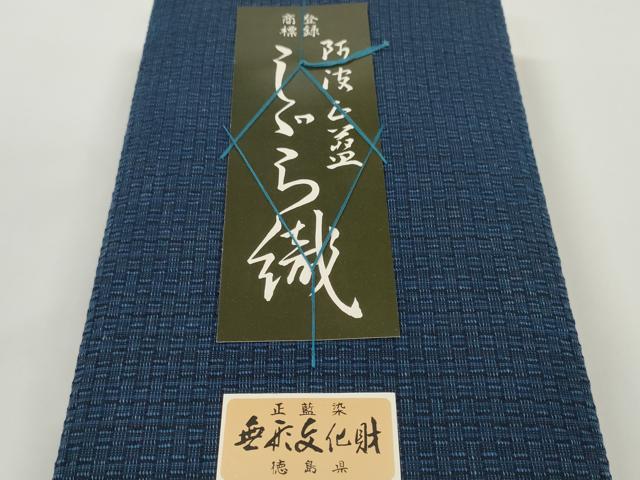 登録
商標
阿波正藍
しゞら織
正藍染
無形文化財
徳島県